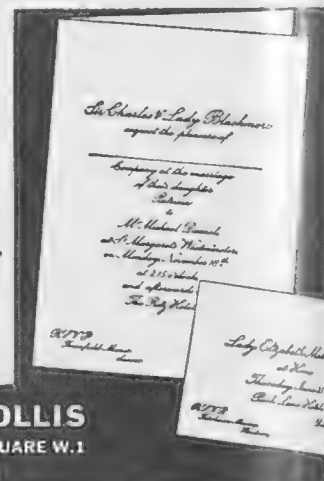 Sir Charles & Lady Blackmore
request the pleasure of
Company at the marriage
of their daughter
to
Mr Michael
at St. Margaret's Westminster
on Monday, November 18th
at 2.15 o'clock
and afterwards
The Ritz Hotel
R.S.V.P.
Lady Elizabeth
at Home
Thursday, June
Park Lane Hotel
R.S.V.P.
OLLIS
UARE W.1